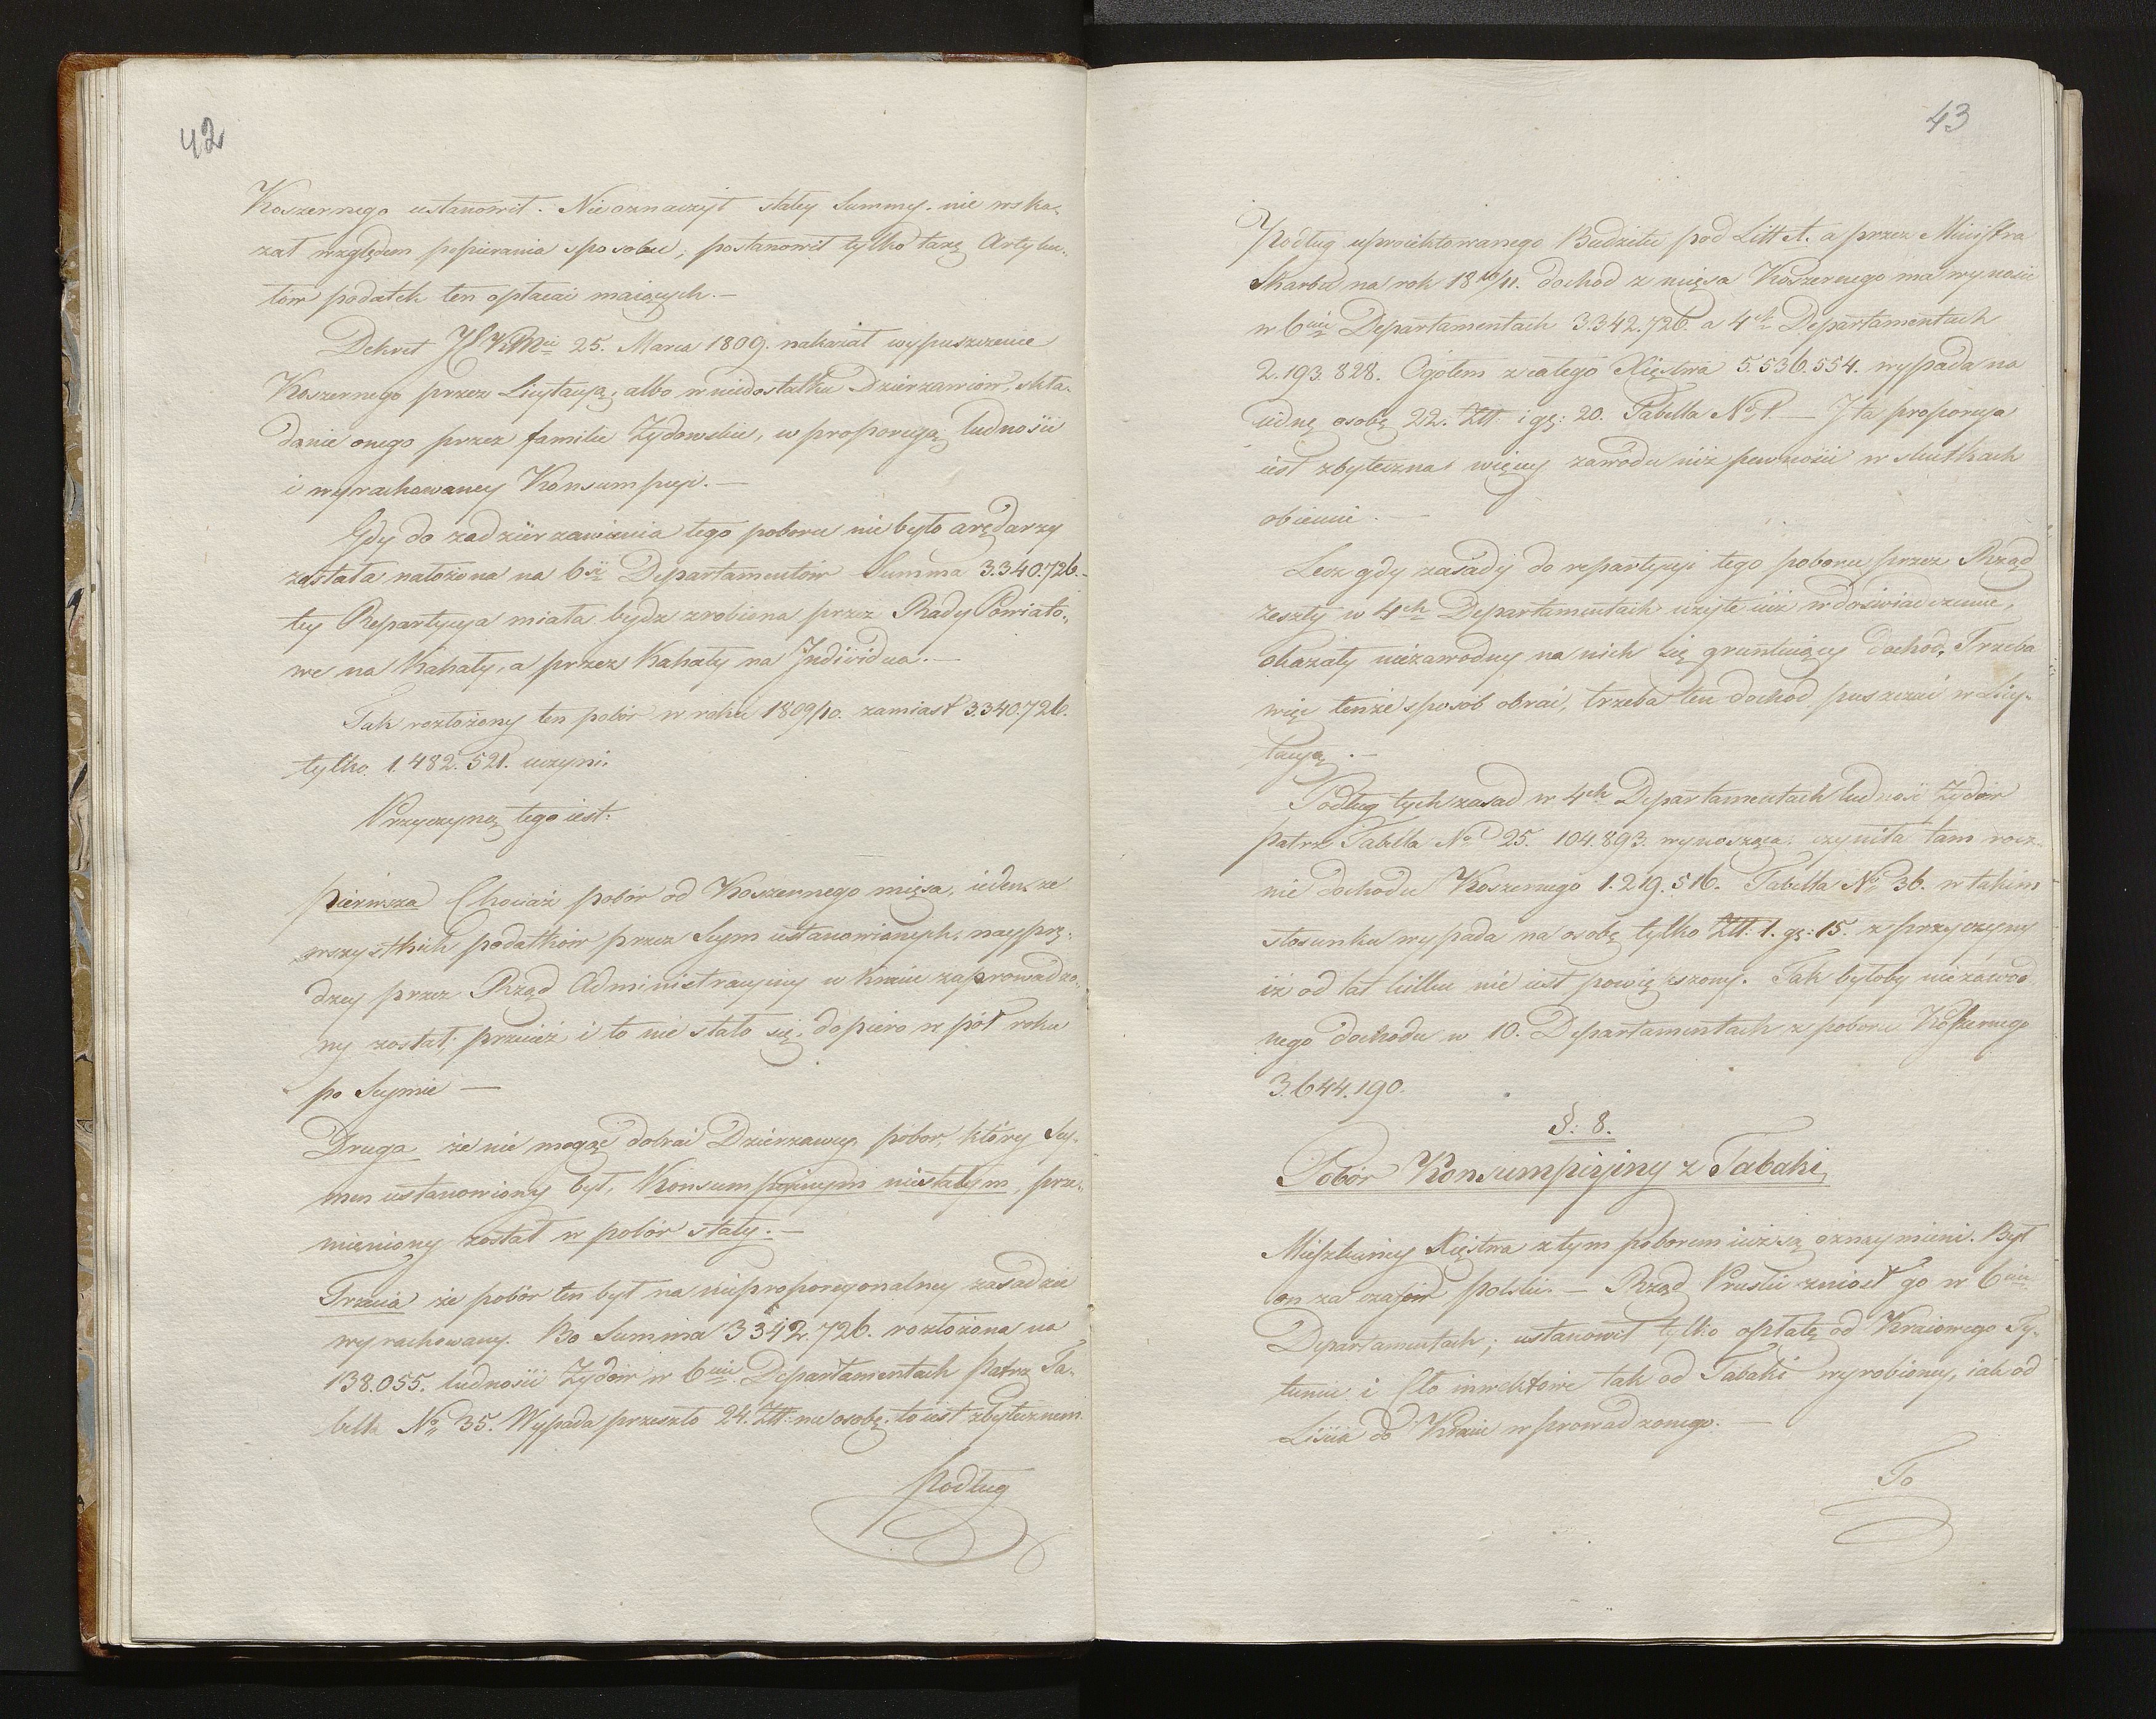 42
Koszernego ustanowił. Nie oznaczył stałey Summy. nie wska-
zał względem popierania sposobu; postanowił tylko taxę Artyku-
łów podatek ten opłacać maiących.—
Dekret JKMci 25. Marca 1809. nakazał wypuszczenie
Koszernego przez Licytacyą; albo w niedostatku Dzierzawców, skła-
danie onego przez familie Żydowskie, w proporcyą ludności
i wyrachowaney Konsumpcyi.—
Gdy do zadzierzawienia tego poboru nie było arędarzy
została nałożona na 6ść Departamentów Summa 3.340.726.-
tey Repartycya miała bydz zrobiona przez Rady Powiato-
we na Kahały, a przez Kahały na Individua.—
Tak rozłożony ten pobór w roku 1809/10. zamiast 3.340.726.
tylko 1.482.521. uczyni.
Przyczyną tego iest:
pierwsza Chociaż pobór od Koszernego mięsa, ieden ze
wszystkich podatków przez Seym ustanowionych. nayprę-
dzey przez Rząd Administracyiny w Kraiu zaprowadzo-
ny został; przecież i to nie stało się; dopiero w pół roku
po Seymie —
Druga że nie mogąc dobrać Dzierzawcy pobor, który Sey-
mem ustanowiony był, Konsumpcyinym niestałym, prze-
mieniony został w pobór stały.—
Trzecia że pobór ten był na nieproporcyonalney zasadzie
wyrachowany. Bo Summa 3342.726. rozłożona na
138.055. ludności Żydów w 6ciu Departamentach patrz Ta-
bella No 35. Wypada przeszło 24. Złł: na osobę. to iest zbytecznem
podług
43
Podług uproiektowanego Budżetu pod Litt A. a przez Ministra
Skarbu na rok 18 10/11. dochod z mięsa Koszernego ma wynosić
w 6ciu Departamentach 3.342.726. a 4ch Departamentach
2.193.828. Ogółem z całego Xięstwa 5.536.554. wypada na
iedną osobę 22. Złł: i gr: 20. Tabella No 1.— I ta proporcya
iest zbyteczna. więcey zawodu niż pewności w skutkach
obiecuie.—
Lecz gdy zasady do repartycyi tego poboru przez Rząd
zeszły w 4ch Departamentach użyte iuż w doświadczeniu,
okazały niezawodny na nich się gruntuiący dochod. Trzeba
więc tenże sposób obrać, trzeba ten dochod puszczać w Licy-
tacyą.—
Podług tych zasad w 4ch Departamentach ludność Żydów
patrz Tabella No 25. 104.893. wynosząca. czyniła tam rocz-
nie dochodu Koszernego 1.219.516. Tabella No 36. w takim
stosunku wypada na osobę tylko Złł. 1. gr: 15. z przyczyny
iż od lat kilku nie iest powiększony. Tak byłoby niezawod
nego dochodu w 10. Departamentach z poboru Koszernego
3.644.190.
§: 8.
Pobór Konsumpcyiny z Tabaki,
Mieszkańcy Xięstwa z tym poborem iuż są oznaymieni. Był
on za czasów polskie.— Rząd Pruski zniosł go w 6ciu
Departamentach; ustanowił tylko opłatę od Kraiowego Ty-
tuniu i Cło inwektowe tak od Tabaki wyrobioney, iak od
Liścia do Kraiu wprowadzonego.—
To